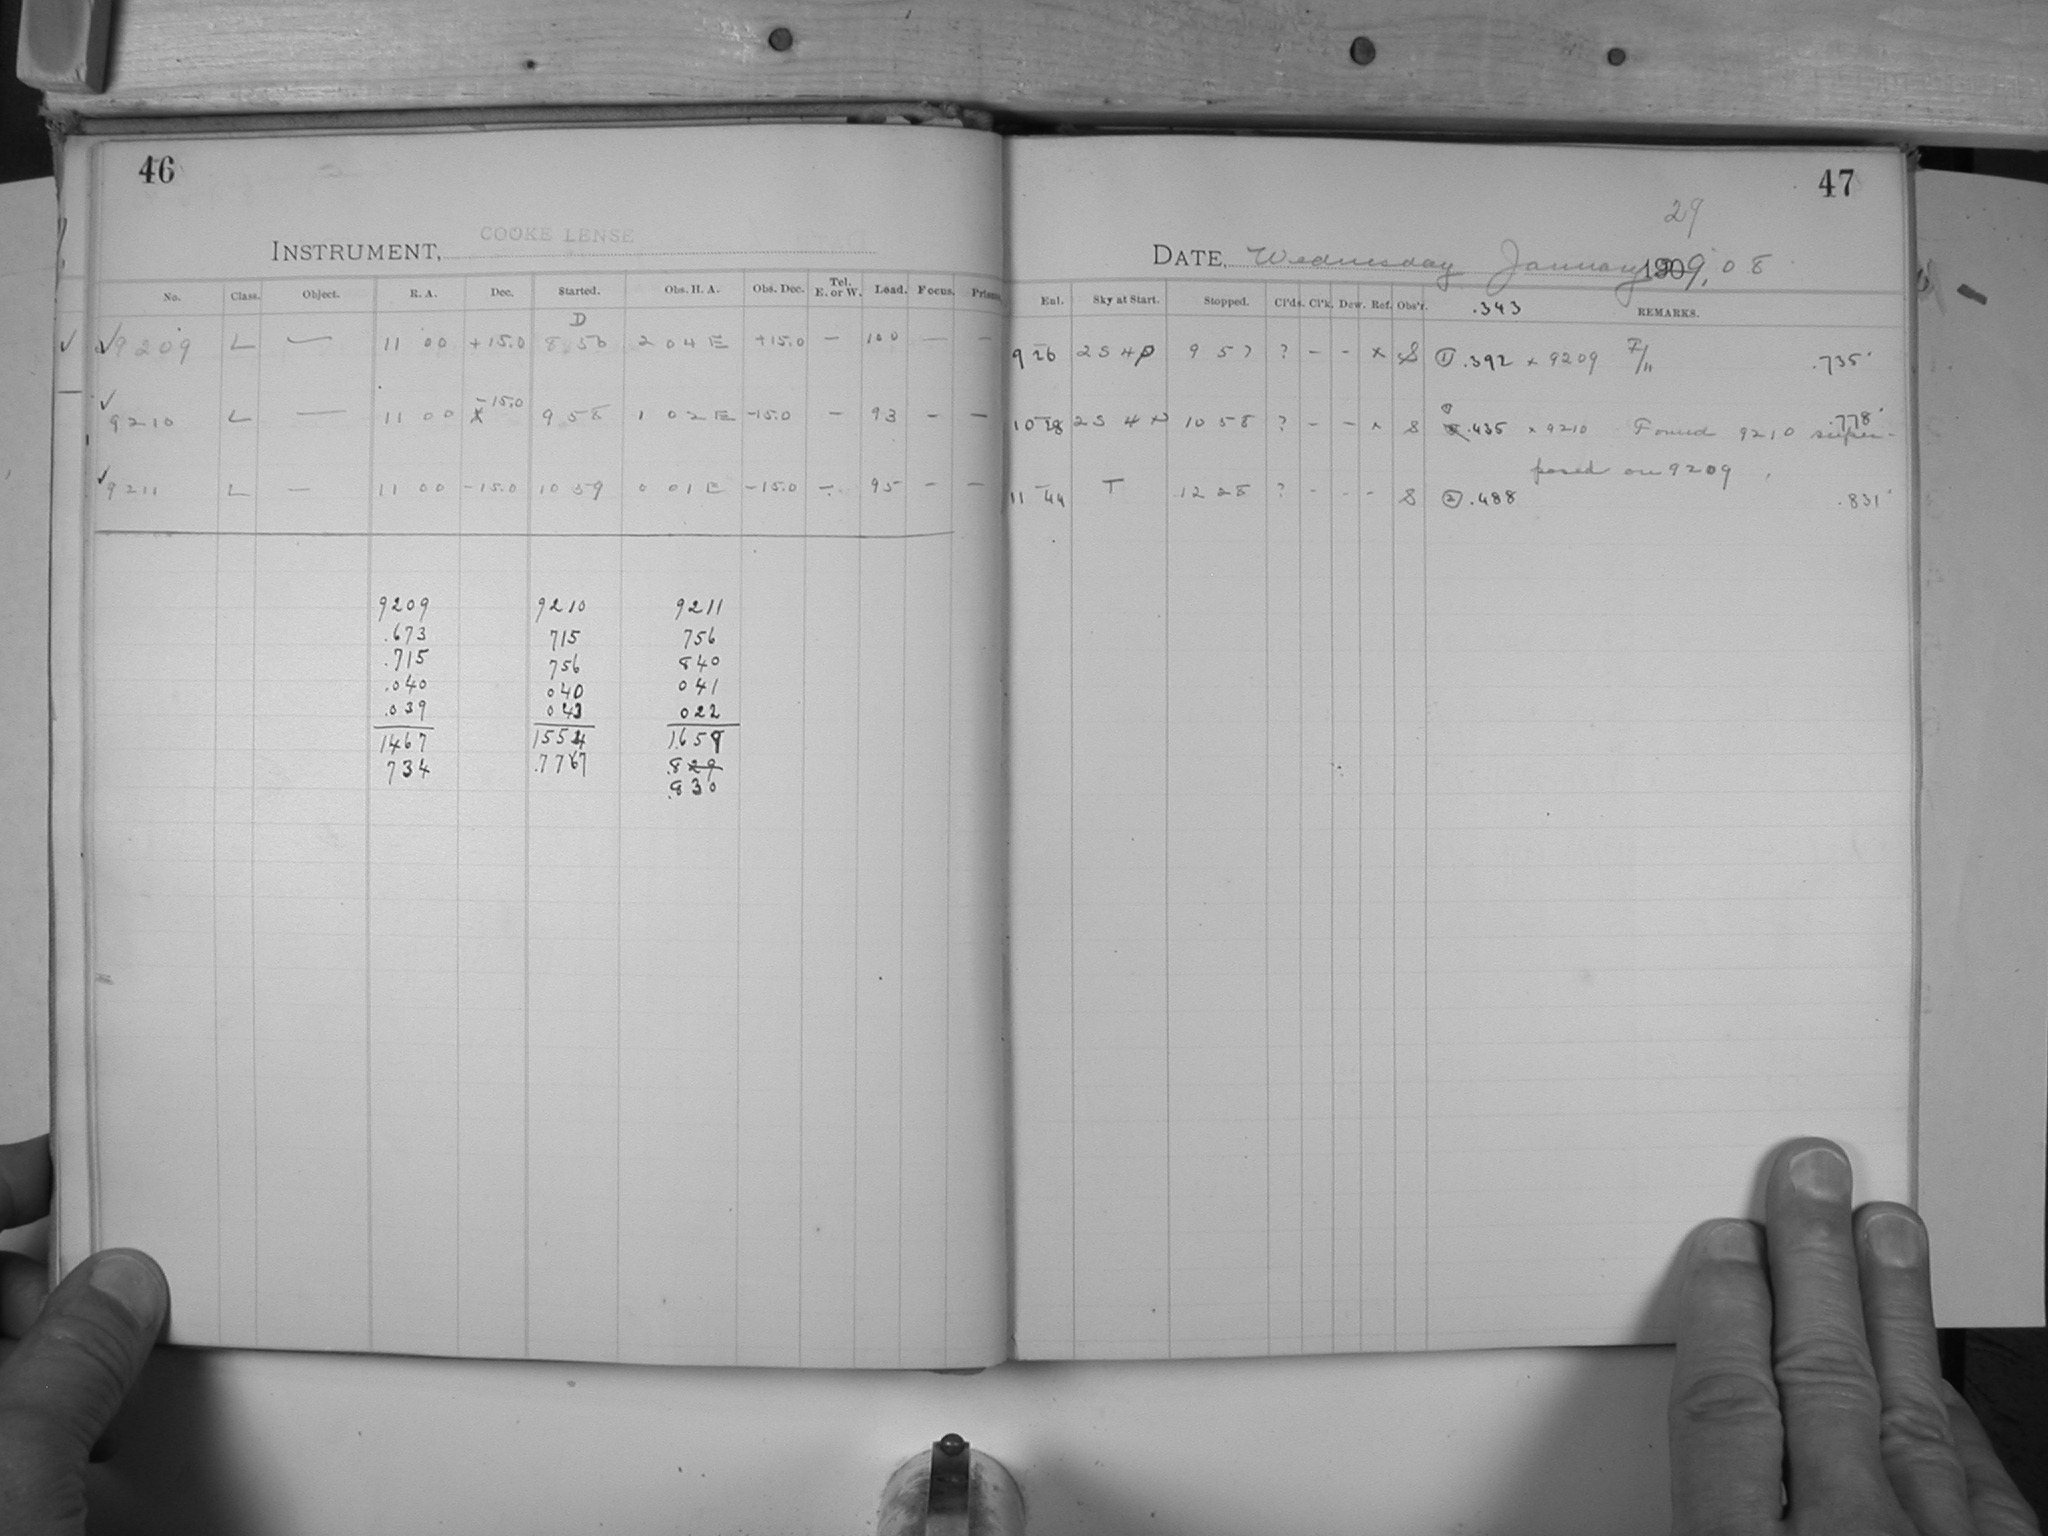 46
INSTRUMENT, COOKE LENSE
No. Class. Object. R. A. Dec. Started. Obs. H. A. Obs. Dec. Tel. E. or W. Load. Focus. Prisms
D
✓ ✓9209 L — 11 00 +15.0 8 56 2 04 E +15.0 — 100 — —
-15.0
✓ 9210 L — 11 00 9 58 1 02 E -15.0 — 93 — —
✓ 9211 L — 11 00 -15.0 10 59 0 01 E -15.0 — 95 — —
9209 9210 9211
.673 715 756
.715 756 840
.040 040 041
.039 043 022
1467 1554 1659
734 .777 .829
.830
47
29
DATE, Wednesday January 1909, 08
Eul. Sky at Start. Stopped. Cl'ds. Cl'k. Dew. Ref. Obs'r. .343 REMARKS.
9 26 2S 4p 9 57 ? - - x S ① .392 x 9209 F/11 .735
10 28 2S 4p 10 58 ? - - x S .435 x 9210 Found 9210 super- .778
posed on 9209
11 44 T 12 28 ? - - - S ② .488 .831